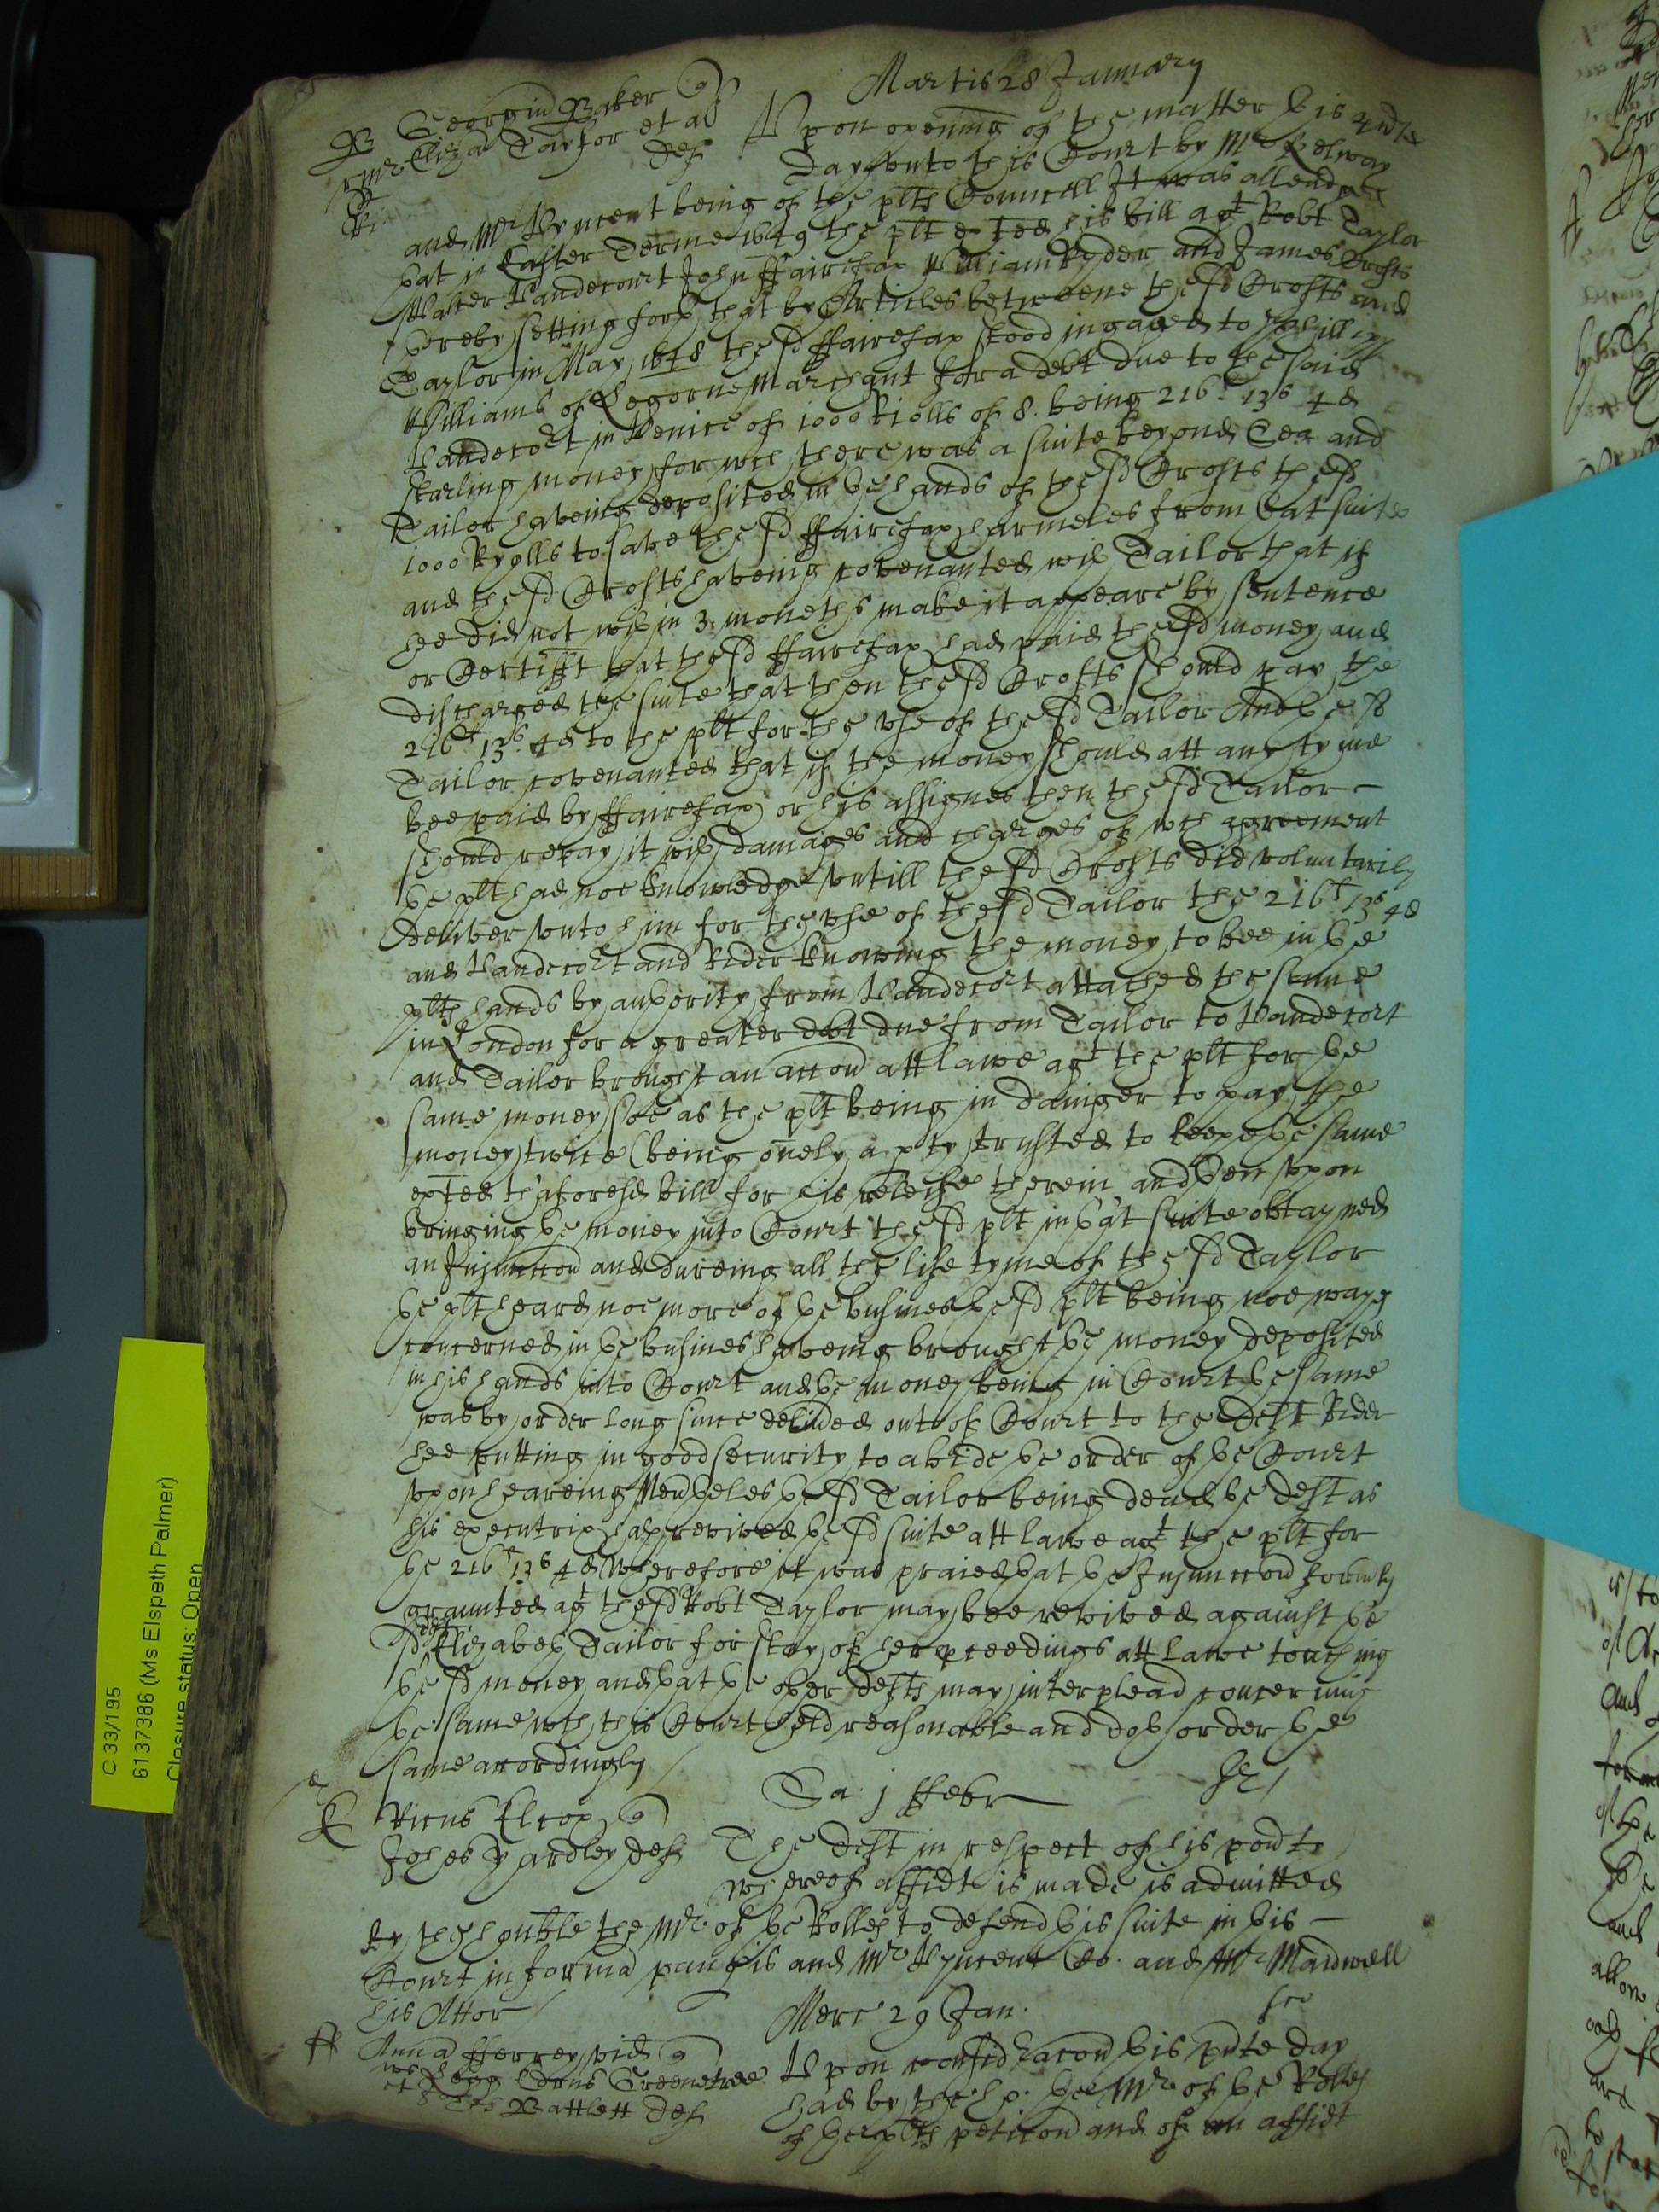 Martis 28 January
B Georgiu Baker q
Eliza Taylor et al def
Upon opening of the matter this pnte
day unto this Court by Mr Kelway
and Mr Vyncent being of the plts Councell It was alleadged
that in Easter Terme 1649 the plt exted his bill agt Robt Taylor
Walter Vandecourt John ffairefax William Ryder and James Crofts
thereby setting forth that by Articles betweene the sd Crofts and
Taylor in May 1648 the sd ffairefax stood ingaged to Phillip
Williams of Legorne Marchant for a debt due to the said
Vandecort in Venice of 1000 Riolls of 8. being 216l 13s 4d
starling money for wch there was a suite beyond Sea and
Tailor haveing deposited in the hands of the sd Crofts the sd
1000 Ryolls to save the sd ffairefax harmeles from that suite
and the sd Crofts haveing covenanted with Tailor that if
hee did not within 3. moneths make it appeare by sentence
or Certifft that the sd ffairefax had paid the sd money and
discharged the suite that then the sd Crofts should pay the
216l 13s 4d to the plt for the use of the sd Tailor And the sd
Tailor covenanted that if the money should att any tyme
bee paid by ffairefax or his assignes then the sd Tailor
should repay it with damages and charges of wch agreement
the plt had noe knowledge untill the sd Crofts did voluntarily
deliver unto him for the use of the sd Tailor the 216l 13s 4d
and Vandecort and Rider knowing the money to bee in the
plts hands by authority from Vandecort attached the same
in London for a greater debt due from Tailor to Vandecort
and Tailor brought an accon att lawe agt the plt for the
same money soe as the plt being in dainger to pay the
money twice (being onely a pty trusted to keepe the same
exted th'aforesd bill for his releife therein and then upon
bringing the money into Court the sd plt in that suite obtayned
an Injunccon and dureing all the life tyme of the sd Taylor
the plt heard noe more of the busines the sd plt being noe wayes
concerned in the busines haveing brought the money deposited
in his hands into Court and the money being in Court the same
was by order long since delived out of Court to the Deft Rider
hee putting in good security to abide the order of the Court
upon heareing Neverthelesse the sd Tailor being dead the deft as
his executrix hath revived the sd suite att lawe agt the plt for
the 216l 13s 4d Wherefore it was praied that the Injunccon formly
graunted agt the sd Robt Taylor may bee revived against the
sd deft Elizabeth Tailor for stay of her pceedings att lawe touching
the sd money and that the other defts may interplead concerning
the same wch this Court held reasonable and doth order the
same accordingly
Sa. j ffebr
Ricus Elcox q
Johes Yardley def
The deft in respect of his povtie
whereof affidt is made is admitted
by the honble the Mr. of the Rolles to defend this suite in this
Court in forma paupis and Mr Vyncent Co. and Mr Maidwell
his Attor
Merc 29 Jan.
ff Anna vid q
Greenetree
Bartlett def
Upon considracon this pnte day
had by the ho. the Mr. of the Rolles
of the plts peticon and of an affidt
C 33/195
6137386 (Ms Elspeth Palmer)
Closure status: Open